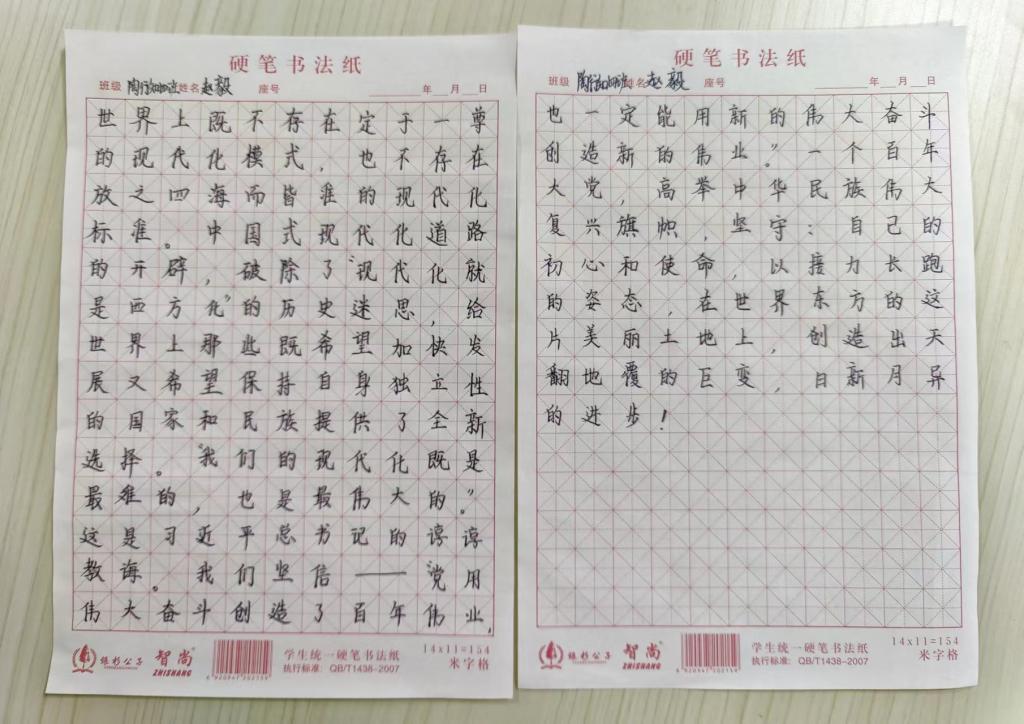 硬笔书法纸
班级 姓名赵毅 座号 年 月 日
世界上既不存在定于一尊
的现代化模式，也不存在
放之四海而皆准的现代化
标准。中国式现代化道路
的开辟，破除了“现代化就
是西方化”的历史迷思，给
世界上那些既希望加快发
展又希望保持自身独立性
的国家和民族提供了全新
选择。“我们的现代化既是
最难的，也是最伟大的”。
这是习近平总书记的谆谆
教诲。我们坚信——“党用
伟大奋斗创造了百年伟业，
银杉公子 智尚 ZHISHANG
6920947202159
学生统一硬笔书法纸
执行标准：QB/T1438-2007
14x11=154
米字格
硬笔书法纸
班级 姓名赵毅 座号 年 月 日
也一定能用新的伟大奋斗
创造新的伟业”。一个百年
大党，高举中华民族伟大
复兴旗帜，坚守：自己的
初心和使命，以接力长跑
的姿态，在世界东方的这
片美丽土地上，创造出天
翻地覆的巨变，日新月异
的进步！
银杉公子 智尚 ZHISHANG
6920947202159
学生统一硬笔书法纸
执行标准：QB/T1438-2007
14x11=154
米字格